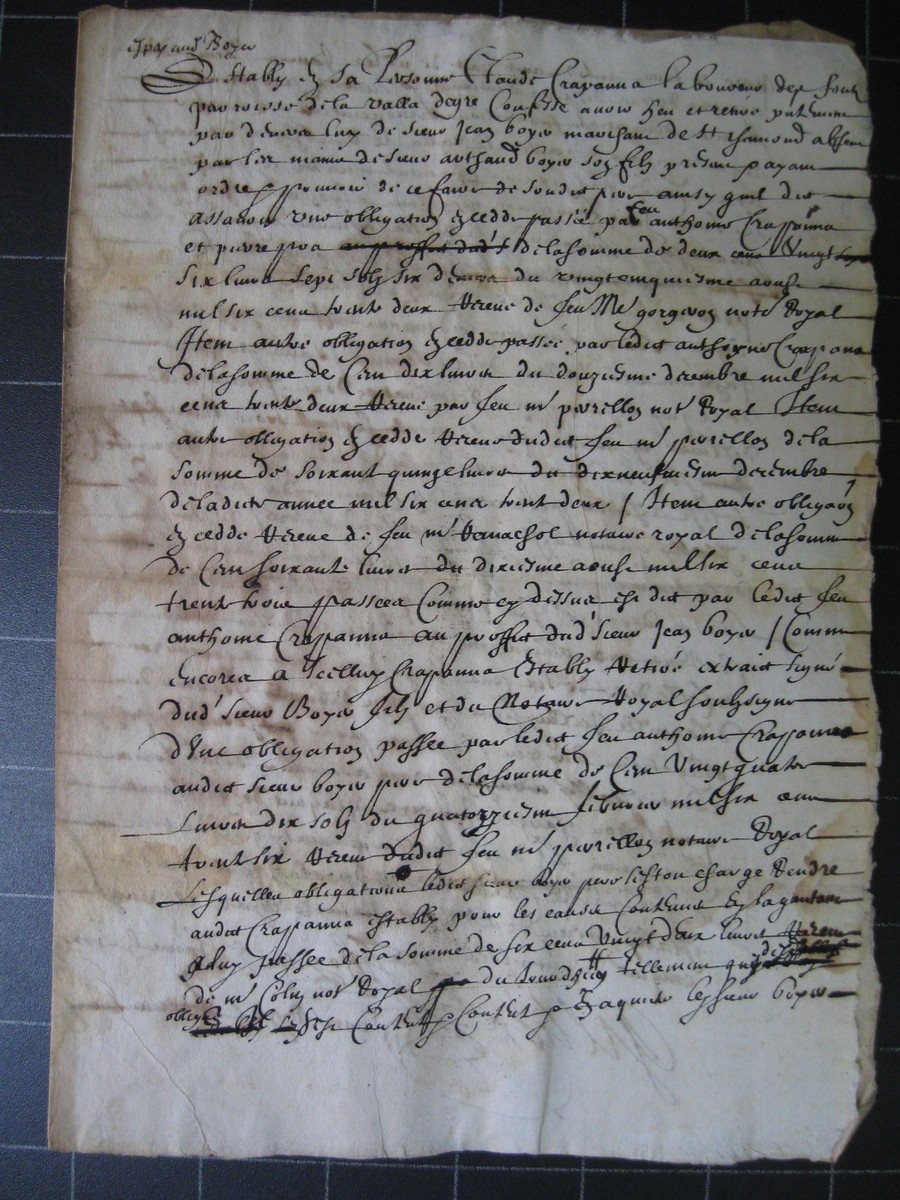 Boyer
Estably en sa personne Claude Crapanna laboureur
parroisse de la valla de gre Confesse avoir heu et retiré
par devers luy de sieur Jean boyer marchant de St chamond absent
par les mains de sieur anthand boyer son filz present
ordre pouvoir de ce faire de sondit pere ainsy quil dit
assavoir une obligation cedde passée par feu anthoine Crappanna
et pierre de la somme de deux cens vingt
six livres sept solz six deniers du vingtcinquiesme aoust
mil six cens trente deux Receue de feu Me notre Royal
Item autre obligation cedde passée par ledict anthoyne Crapana
de la somme de Cens dix livres du douziesme decembre mil six
cens trente deux Receue par feu me perellon notre Royal Item
autre obligation cedde Receue dudict feu me perellon de la
somme de soixante quinze livres du dixneufviesme decembre
de ladicte annee mil six cens trente deux / Item autre obligaon
cedde Receue de feu me notaire royal de la somme
de Cens soixante livres du dixiesme aoust mil six cens
trente trois passees Comme cy dessus est dict par ledict feu
anthoine Crapanna au proffit dud' sieur Jean boyer / Comme
encores a Icelluy Crapanna Estably Retiré extraict signé
dud' sieur Boyer filz et du Notaire Royal soubzsigne
d'Une obligation passée par ledict feu anthoine Crappanna
audict sieur boyer pere de la somme de Cens Vingt quatre
livres dix solz du quatorziesme febvrier mil six cens
trente six Receue dudict feu me perellon notaire Royal
Lesquelles obligations ledict sieur boyer pere charge Rendre
audict Crapanna estably pour les causes Contenues en la
a luy passée de la somme de six cens Vingt deux livres Receue
de me Colin notre Royal du Jourdhuy tellement
obligé Content Content aquicte ledict sieur boyer